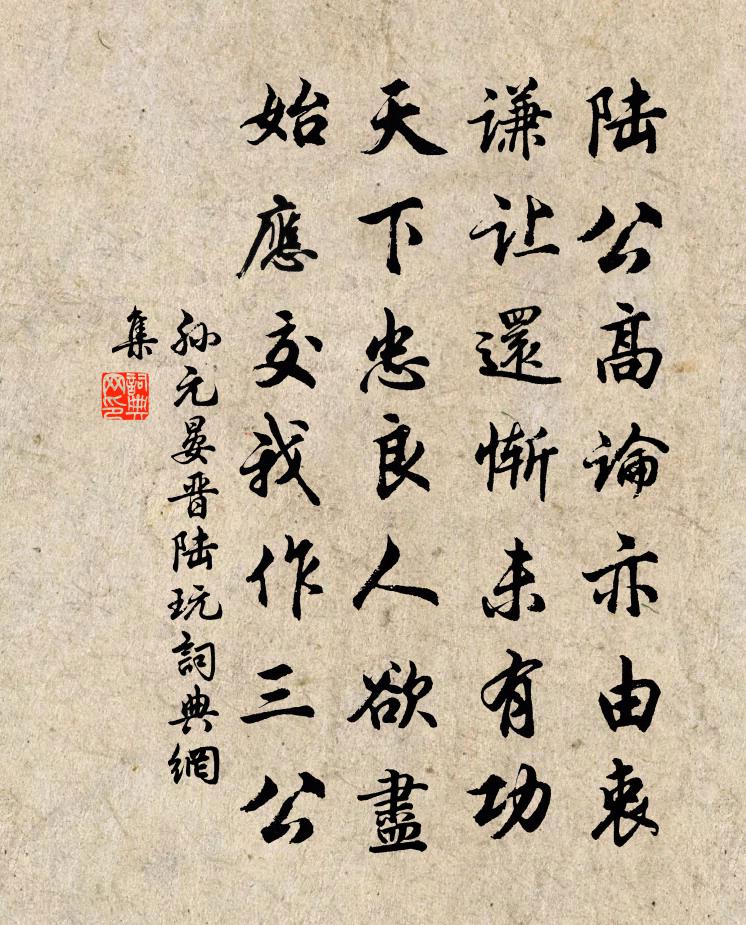 陆公高論亦由衷
谦让還慚未有功
天下忠良人欲盡
始應交我作三公
孙元晏晋陆玩詞典網
集
詞典网印